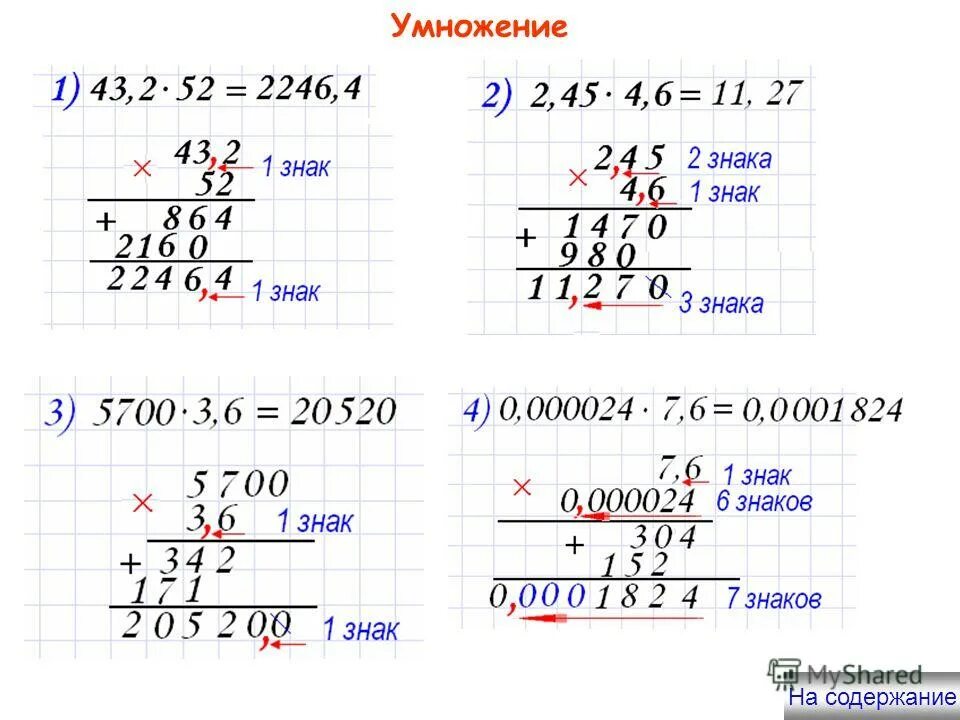 Умножение
1) 43,2 · 52 = 2246,4
× 43,2 1 знак
52
+ 864
2160
2246,4 1 знак
2) 2,45 · 4,6 = 11, 27
× 2,45 2 знака
4,6 1 знак
+ 1470
980
11,270 3 знака
3) 5700 · 3,6 = 20520
× 5700
3,6 1 знак
+ 342
171
20520,0 1 знак
4) 0,000024 · 7,6 = 0,0001824
× 7,6 1 знак
0,000024 6 знаков
+ 304
152
0,0001824 7 знаков
MyShared
На содержание